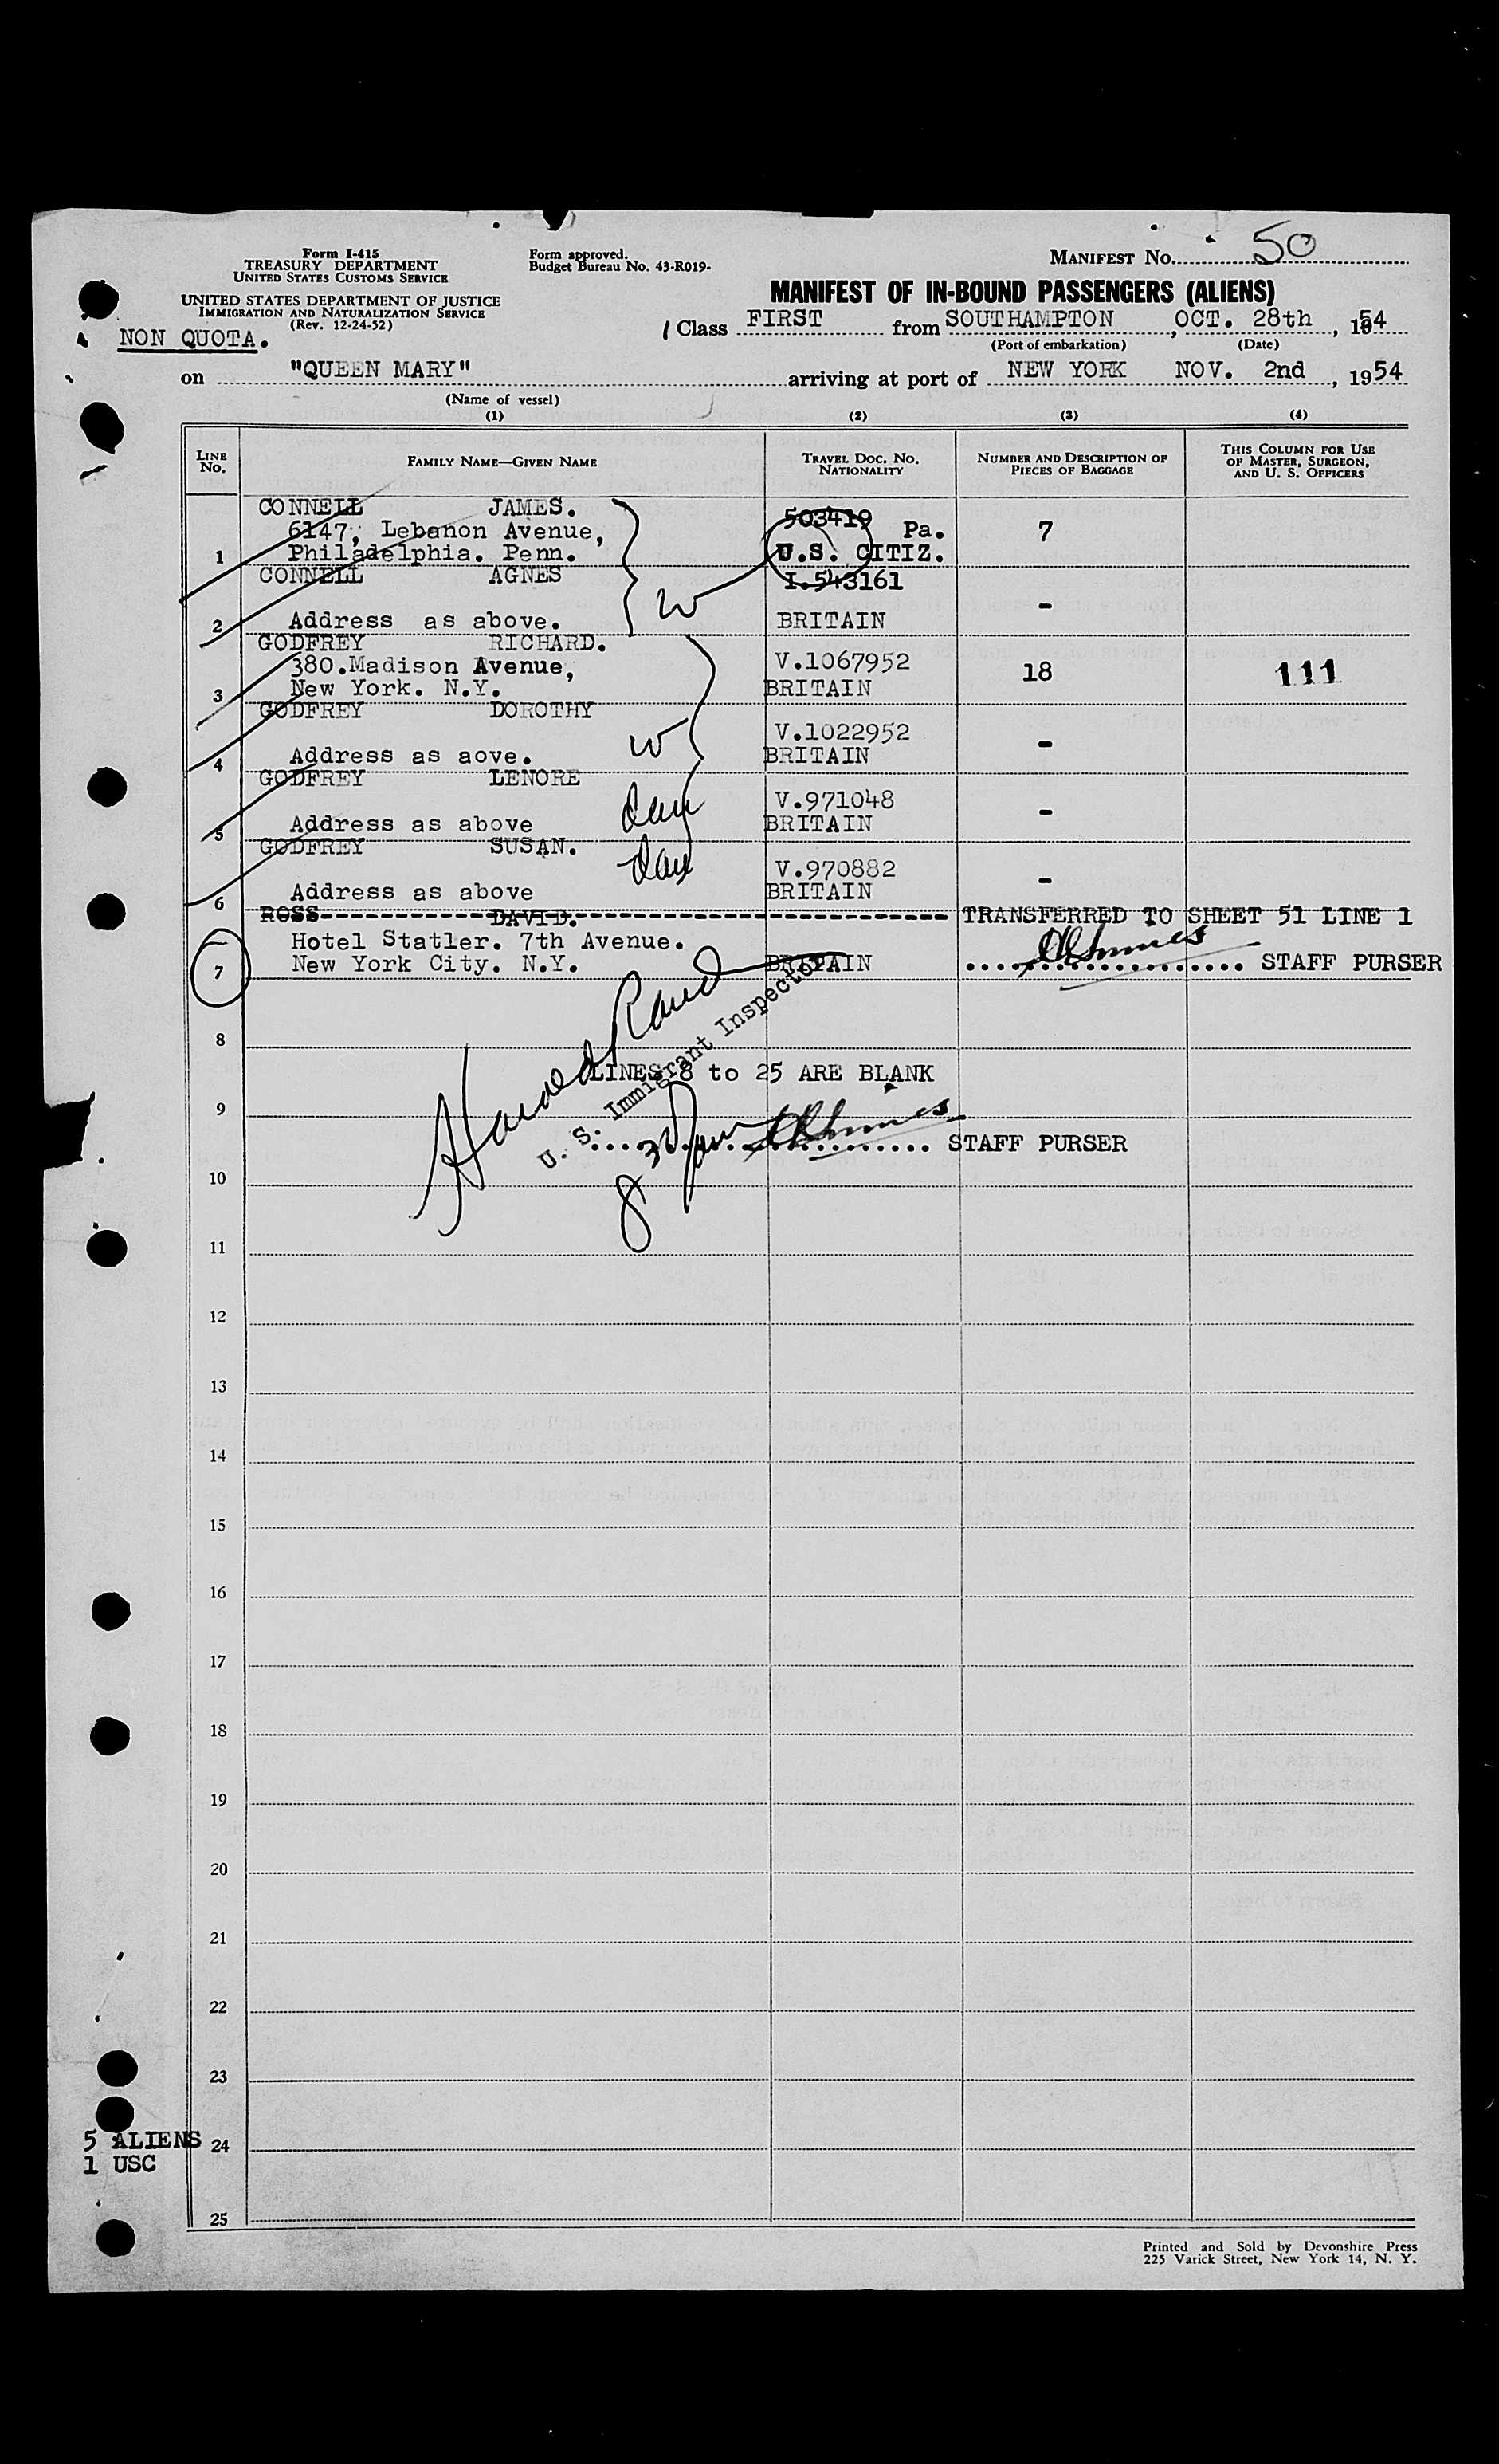 Form I-415
TREASURY DEPARTMENT
UNITED STATES CUSTOMS SERVICE
UNITED STATES DEPARTMENT OF JUSTICE
IMMIGRATION AND NATURALIZATION SERVICE
(Rev. 12-24-52)
Form approved.
Budget Bureau No. 43-R019-
MANIFEST No. 50
MANIFEST OF IN-BOUND PASSENGERS (ALIENS)
NON QUOTA.
Class FIRST from SOUTHAMPTON, OCT. 28th, 1954
(Port of embarkation) (Date)
on "QUEEN MARY" arriving at port of NEW YORK NOV. 2nd, 1954
(Name of vessel)
(1) (2) (3) (4)
LINE No. FAMILY NAME—GIVEN NAME TRAVEL DOC. No. NATIONALITY NUMBER AND DESCRIPTION OF PIECES OF BAGGAGE THIS COLUMN FOR USE OF MASTER, SURGEON, AND U. S. OFFICERS
CONNELL JAMES. 503419
6147, Lebanon Avenue, Pa. 7
1 Philadelphia. Penn. U.S. CITIZ.
CONNELL AGNES I.543161
W -
2 Address as above. BRITAIN
GODFREY RICHARD.
380.Madison Avenue, V.1067952 18 111
3 New York. N.Y. BRITAIN
GODFREY DOROTHY
W V.1022952 -
4 Address as aove. BRITAIN
GODFREY LENORE
V.971048 -
5 Address as above BRITAIN
GODFREY SUSAN.
V.970882 -
6 Address as above BRITAIN
ROSS DAVID. TRANSFERRED TO SHEET 51 LINE 1
Hotel Statler. 7th Avenue.
7 New York City. N.Y. BRITAIN STAFF PURSER
U. S. Immigrant Inspector
8
LINES 8 to 25 ARE BLANK
9
STAFF PURSER
10
11
12
13
14
15
16
17
18
19
20
21
22
23
5 ALIENS 24
1 USC
25
Printed and Sold by Devonshire Press
225 Varick Street, New York 14, N. Y.